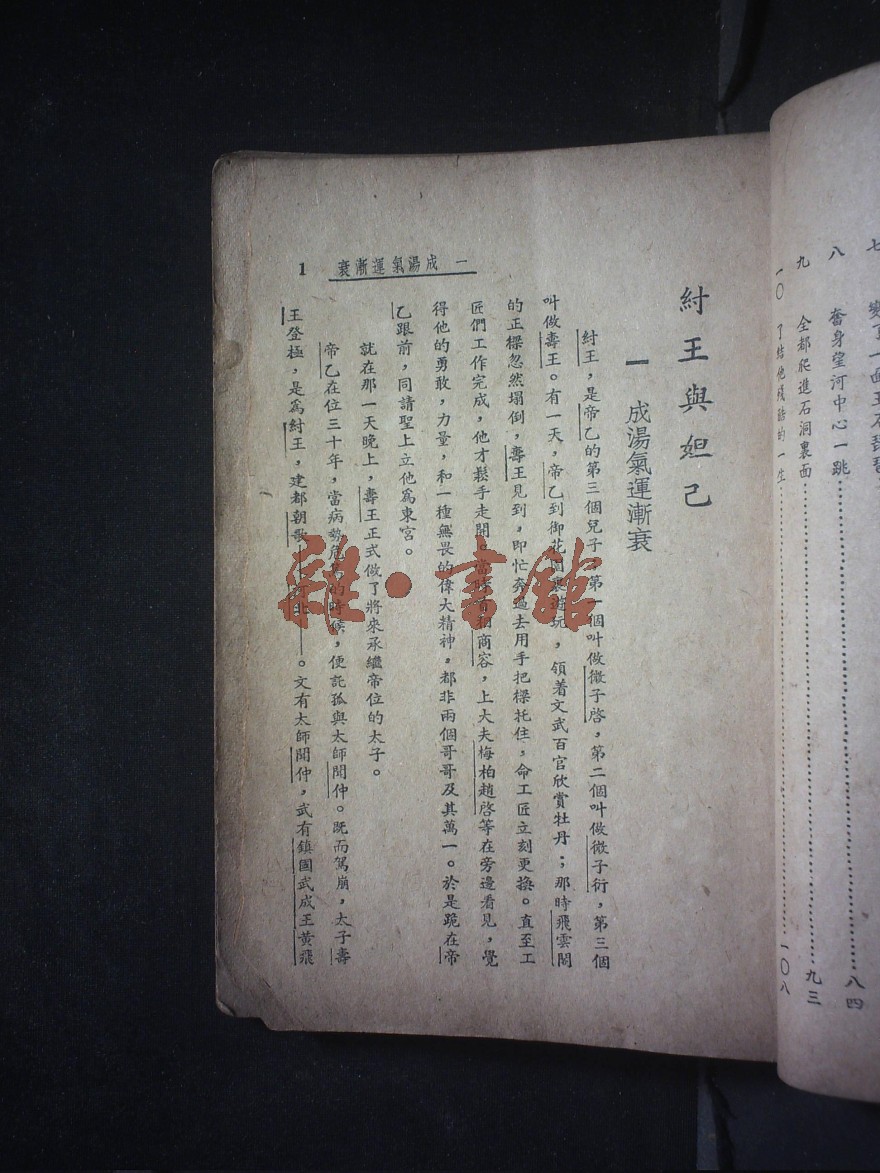 七
八　奮身望河中心一跳……八四
九　全都爬進石洞裏面……九三
一〇　了結他殘酷的一生……一〇八
紂王與妲己
一　成湯氣運漸衰
紂王，是帝乙的第三個兒子，第一個叫做微子啓，第二個叫做微子衍，第三個
叫做壽王。有一天，帝乙到御花園裏遊玩，領着文武百官欣賞牡丹；那時飛雲閣
的正樑忽然塌倒，壽王見到，即忙奔過去用手把樑托住，命工匠立刻更換。直至工
匠們工作完成，他才鬆手走開。當時首相商容，上大夫梅柏趙啓等在旁邊看見，覺
得他的勇敢，力量，和一種無畏的偉大精神，都非兩個哥哥及其萬一。於是跪在帝
乙跟前，同請聖上立他爲東宮。
就在那一天晚上，壽王正式做了將來承繼帝位的太子。
帝乙在位三十年，當病勢危的時候，便託孤與太師聞仲。既而駕崩，太子壽
王登極，是爲紂王，建都朝歌——。文有太師聞仲，武有鎮國武成王黃飛
一　成湯氣運漸衰
1
雜·書館